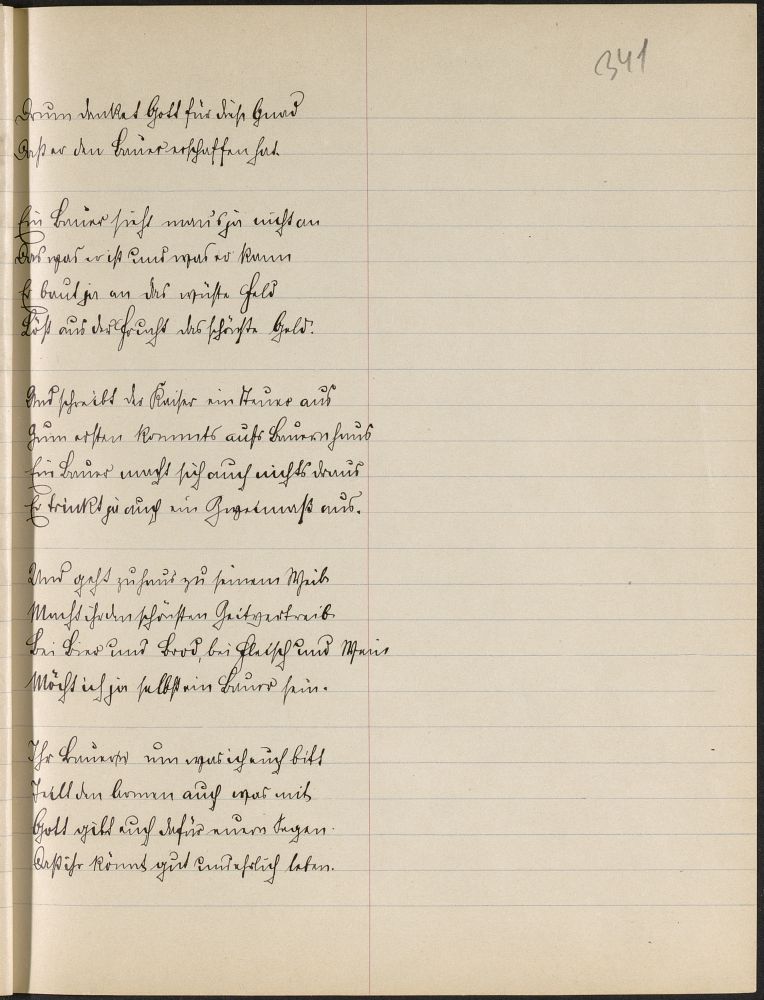 341
Drum danket Gott für diese Gnad
Daß er den Bauer erschaffen hat.
Ein Bauer sieht man's ja nicht an
Das was er ist und was er kann
Er baut ja an das wüste Feld
Löst aus der Frucht das schönste Geld.
Und schreibt der Kaiser ein Steuer aus
Zum ersten kommts aufs Bauernhaus
Ein Bauer macht sich auch nichts draus
Er trinkt ja auch ein Zweimaß aus.
Und geht zuhaus zu seinem Weib
Macht ihr den schönsten Zeitvertreib
Bei Bier und Brod, bei Fleisch und Wein
Möcht ich ja selbst ein Bauer sein.
Ihr Bauern um was ich euch bitt
Teilt den Armen auch was mit
Gott gibt euch dafür euern Segen.
Daß ihr könnt gut und ehrlich leben.